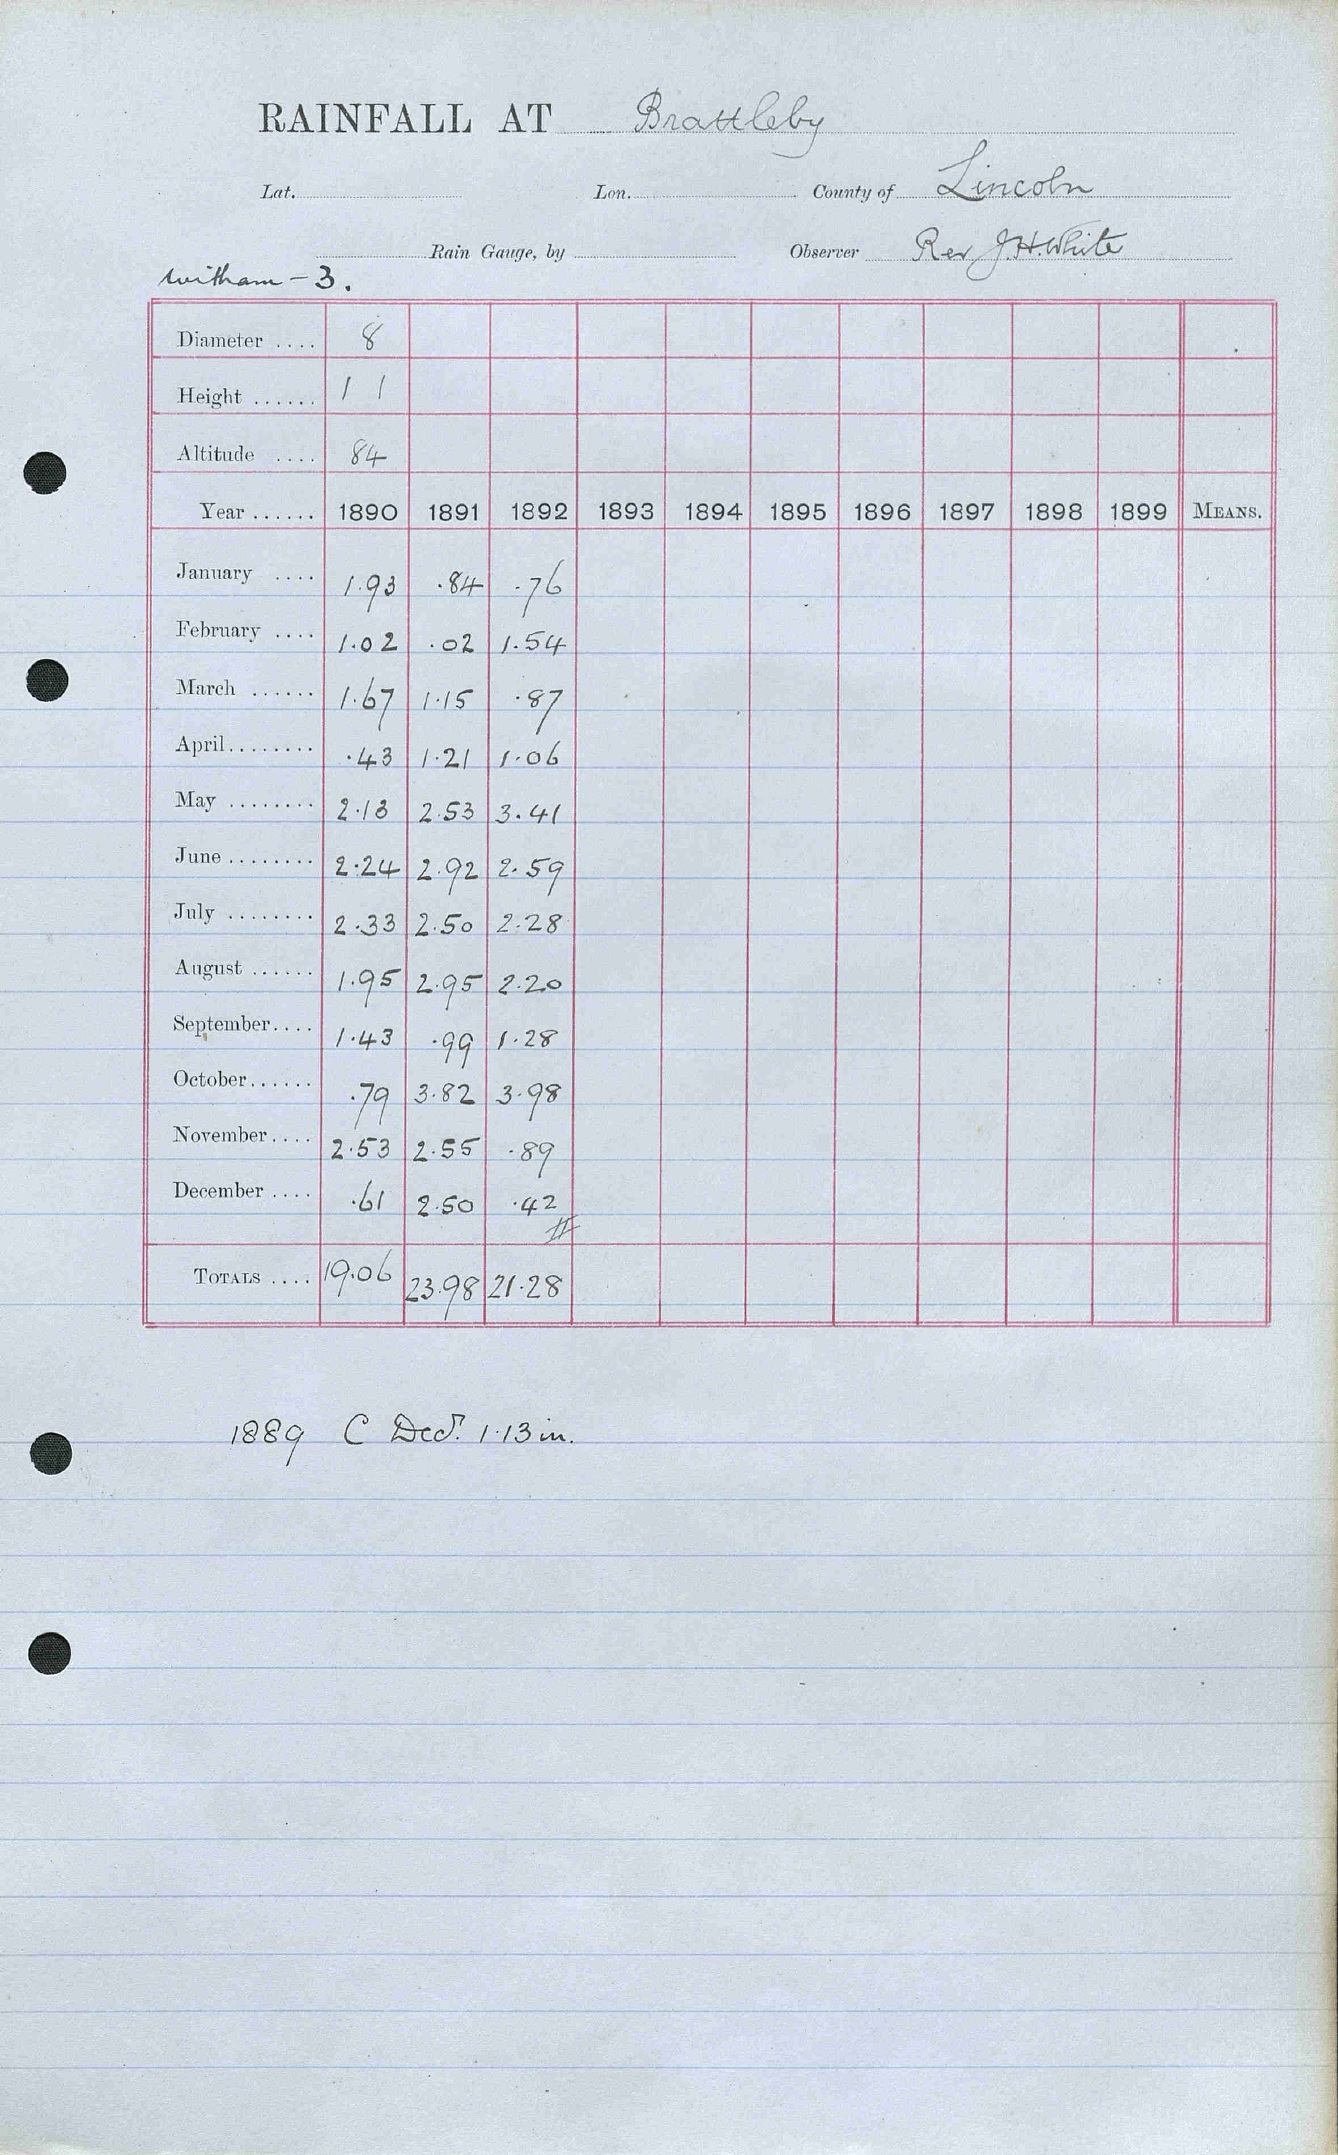 RAINFALL AT Brattleby
Lat. Lon. County of Lincoln
Rain Gauge, by Observer Rev J.H. White
Witham - 3.
Diameter .... 8
Height ...... 1 1
Altitude .... 84
Year ...... 1890 1891 1892 1893 1894 1895 1896 1897 1898 1899 MEANS.
January .... 1.93 .84 .76
February .... 1.02 .02 1.54
March ...... 1.67 1.15 .87
April........ .43 1.21 1.06
May ........ 2.13 2.53 3.41
June ........ 2.24 2.92 2.59
July ........ 2.33 2.50 2.28
August ...... 1.95 2.95 2.20
September.... 1.43 .99 1.28
October...... .79 3.82 3.98
November.... 2.53 2.55 .89
December .... .61 2.50 .42
TOTALS .... 19.06 23.98 21.28
1889 C Decr. 1.13 in.